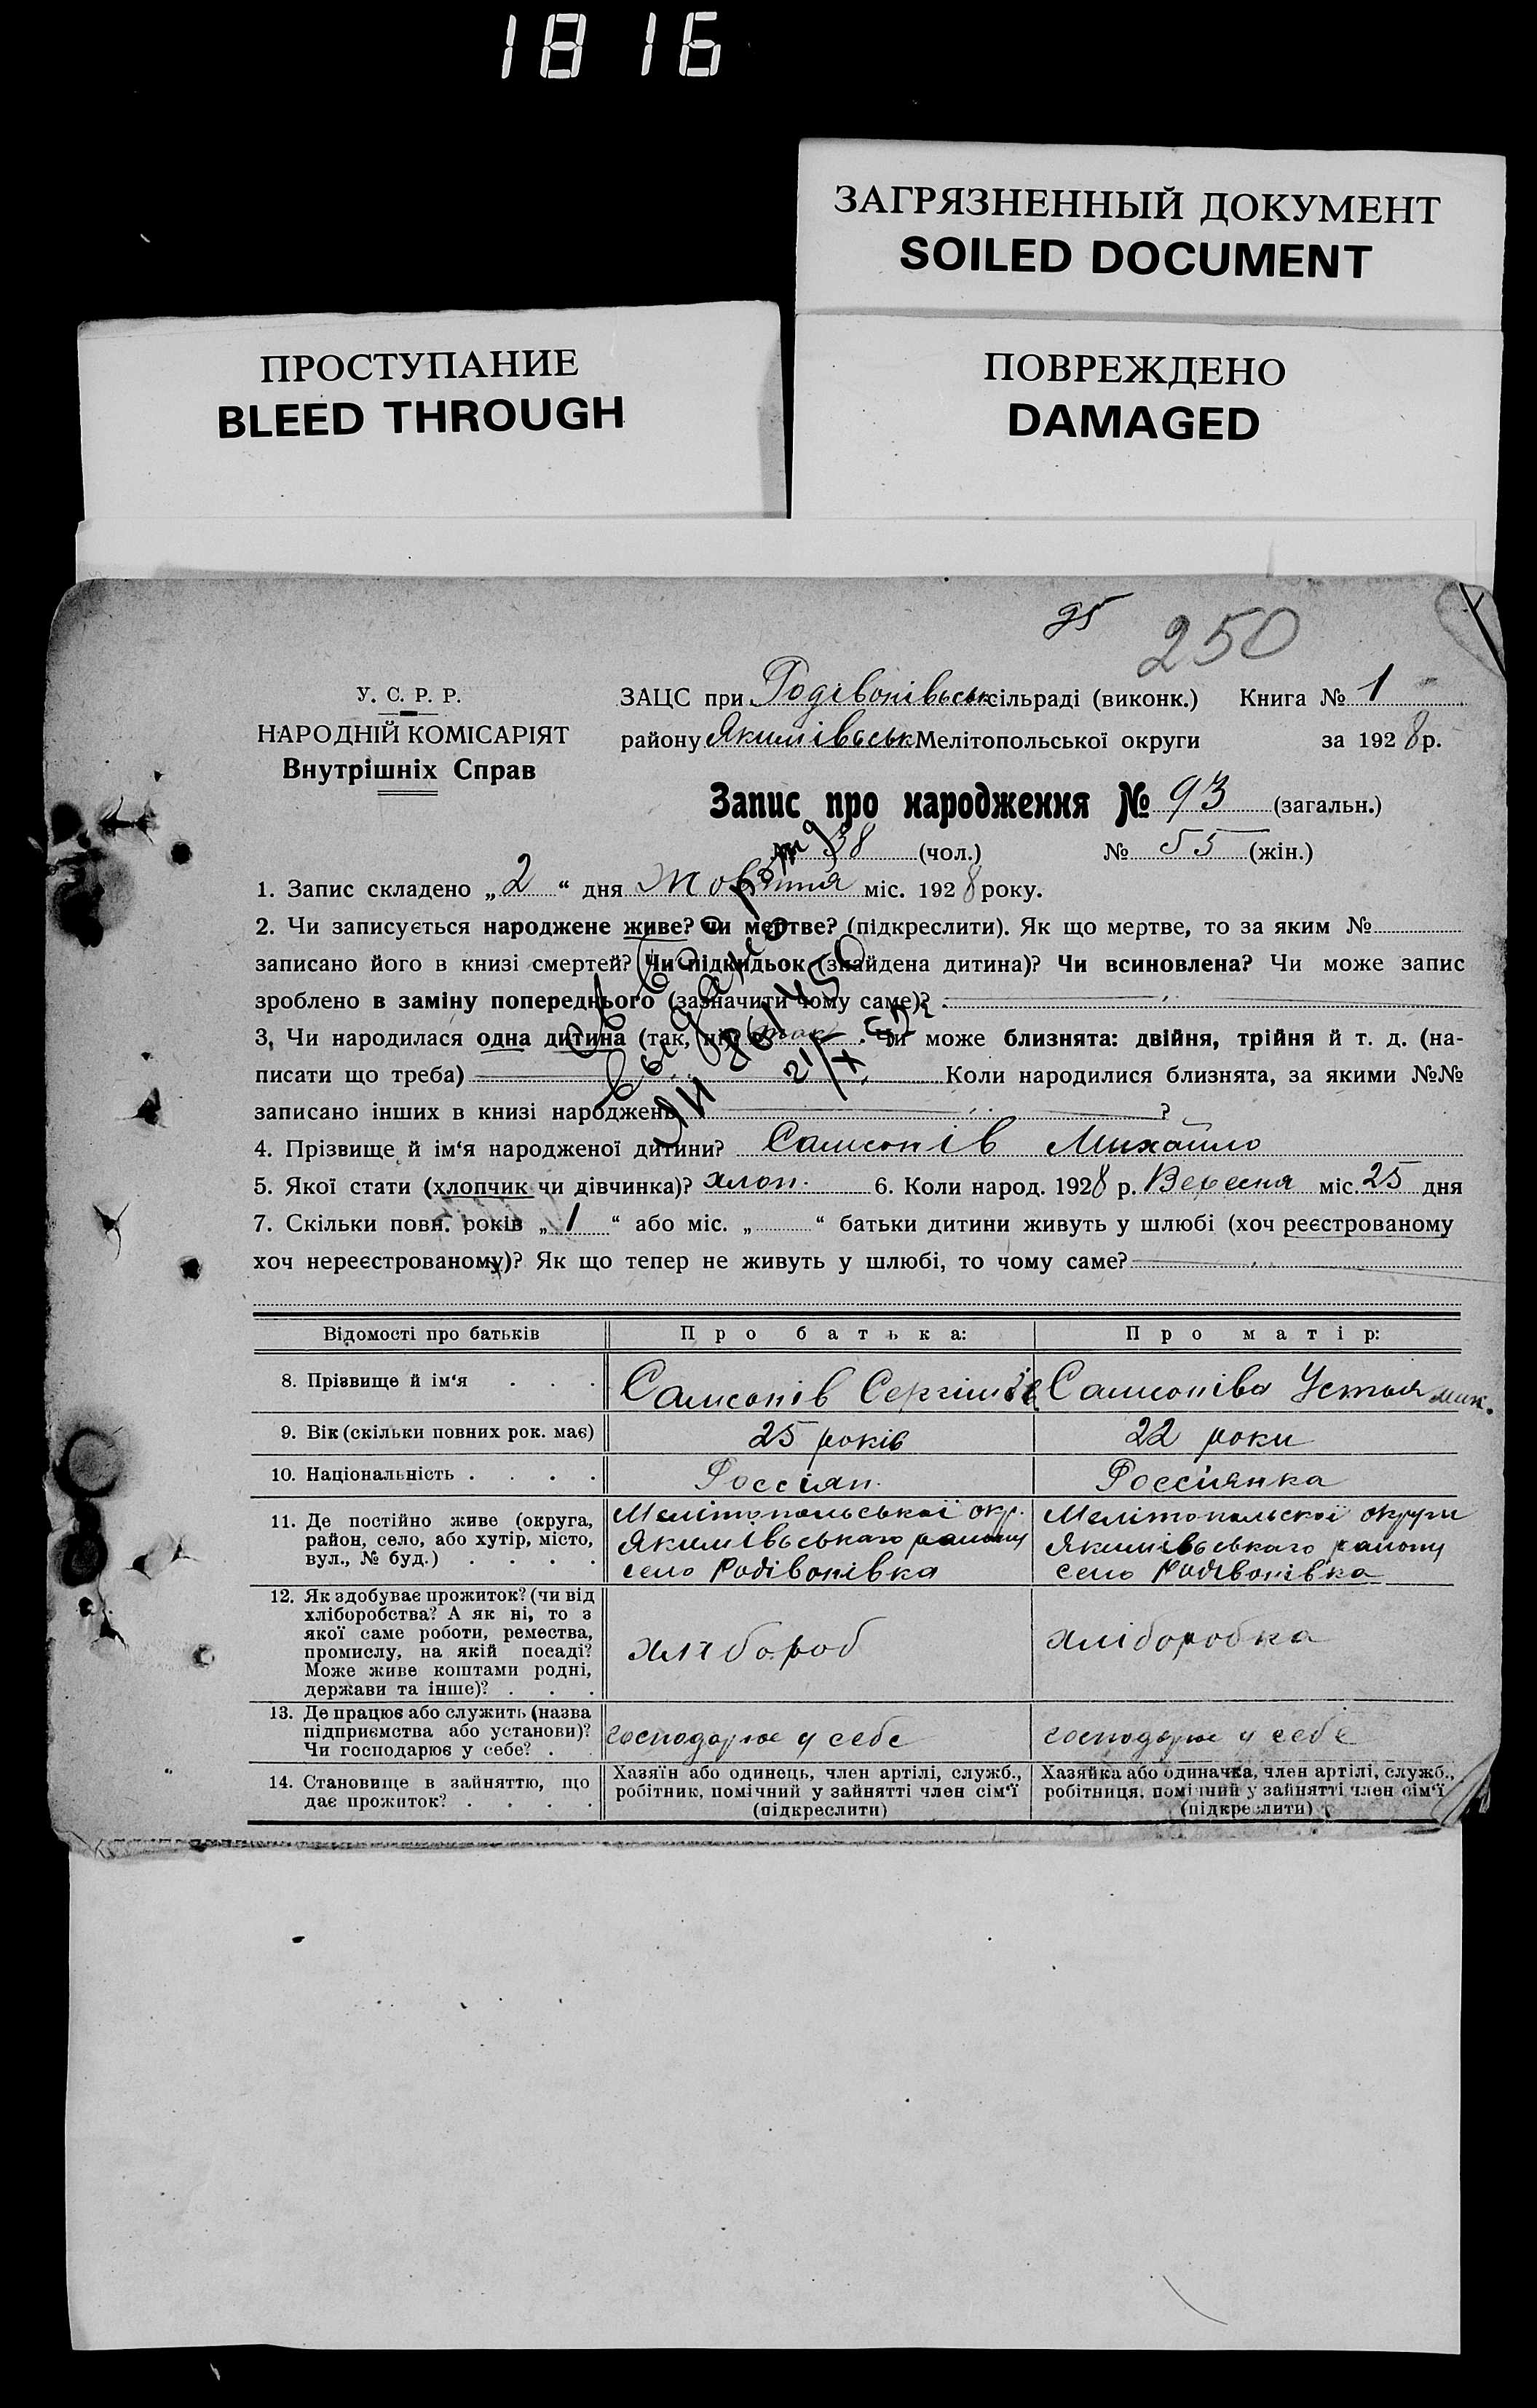 1816
ЗАГРЯЗНЕННЫЙ ДОКУМЕНТ
SOILED DOCUMENT
ПРОСТУПАНИЕ
BLEED THROUGH
ПОВРЕЖДЕНО
DAMAGED
95
250
У. С. Р. Р.
НАРОДНІЙ КОМІСАРІЯТ
Внутрішніх Справ
ЗАЦС при Родівонівськ сільраді (виконк.) Книга № 1
району Якимівськ Мелітопольської округи за 1928 р.
Запис про народження № 93 (загальн.)
№ 38 (чол.) № 55 (жін.)
1. Запис складено „2“ дня Жовтня міс. 1928 року.
2. Чи записується народжене живе? чи мертве? (підкреслити). Як що мертве, то за яким №
записано його в книзі смертей? Чи підкидьок (знайдена дитина)? Чи всиновлена? Чи може запис
зроблено в заміну попереднього (зазначити чому саме)?
3. Чи народилася одна дитина (так, ні) так. Чи може близнята: двійня, трійня й т. д. (на-
писати що треба) Коли народилися близнята, за якими №№
записано інших в книзі народжень ?
4. Прізвище й ім‘я народженої дитини? Самсонів Михайло
5. Якої стати (хлопчик чи дівчинка)? хлоп. 6. Коли народ. 1928 р. Вересня міс. 25 дня
7. Скільки повн. років „1“ або міс. „ “ батьки дитини живуть у шлюбі (хоч реєстрованому
хоч нереєстрованому)? Як що тепер не живуть у шлюбі, то чому саме?
Відомості про батьків
Про батька:
Про матір:
8. Прізвище й ім‘я . . .
Самсонів Сергій
Самсоніва Устья мик.
9. Вік (скільки повних рок. має)
25 років
22 роки
10. Національність . . . .
Россіян.
Россіянка
11. Де постійно живе (округа,
район, село, або хутір, місто,
вул., № буд.) . . . .
Мелітопольської окр.
Якимівського району
село Родівонівка
Мелітопольскої округи
Якимівського району
село Родівонівка
12. Як здобуває прожиток? (чи від
хліборобства? А як ні, то з
якої саме роботи, ремества,
промислу, на якій посаді?
Може живе коштами родні,
держави та інше)? . . .
хлібороб
хліборобка
13. Де працює або служить (назва
підприємства або установи)?
Чи господарює у себе? .
господарює у себе
господарює у себе
14. Становище в зайняттю, що
дає прожиток? . . . .
Хазяїн або одинець, член артілі, служб.,
робітник, помічний у зайнятті член сім‘ї
(підкреслити)
Хазяйка або одиначка, член артілі, служб.,
робітниця, помічний у зайнятті член сім‘ї
(підкреслити)